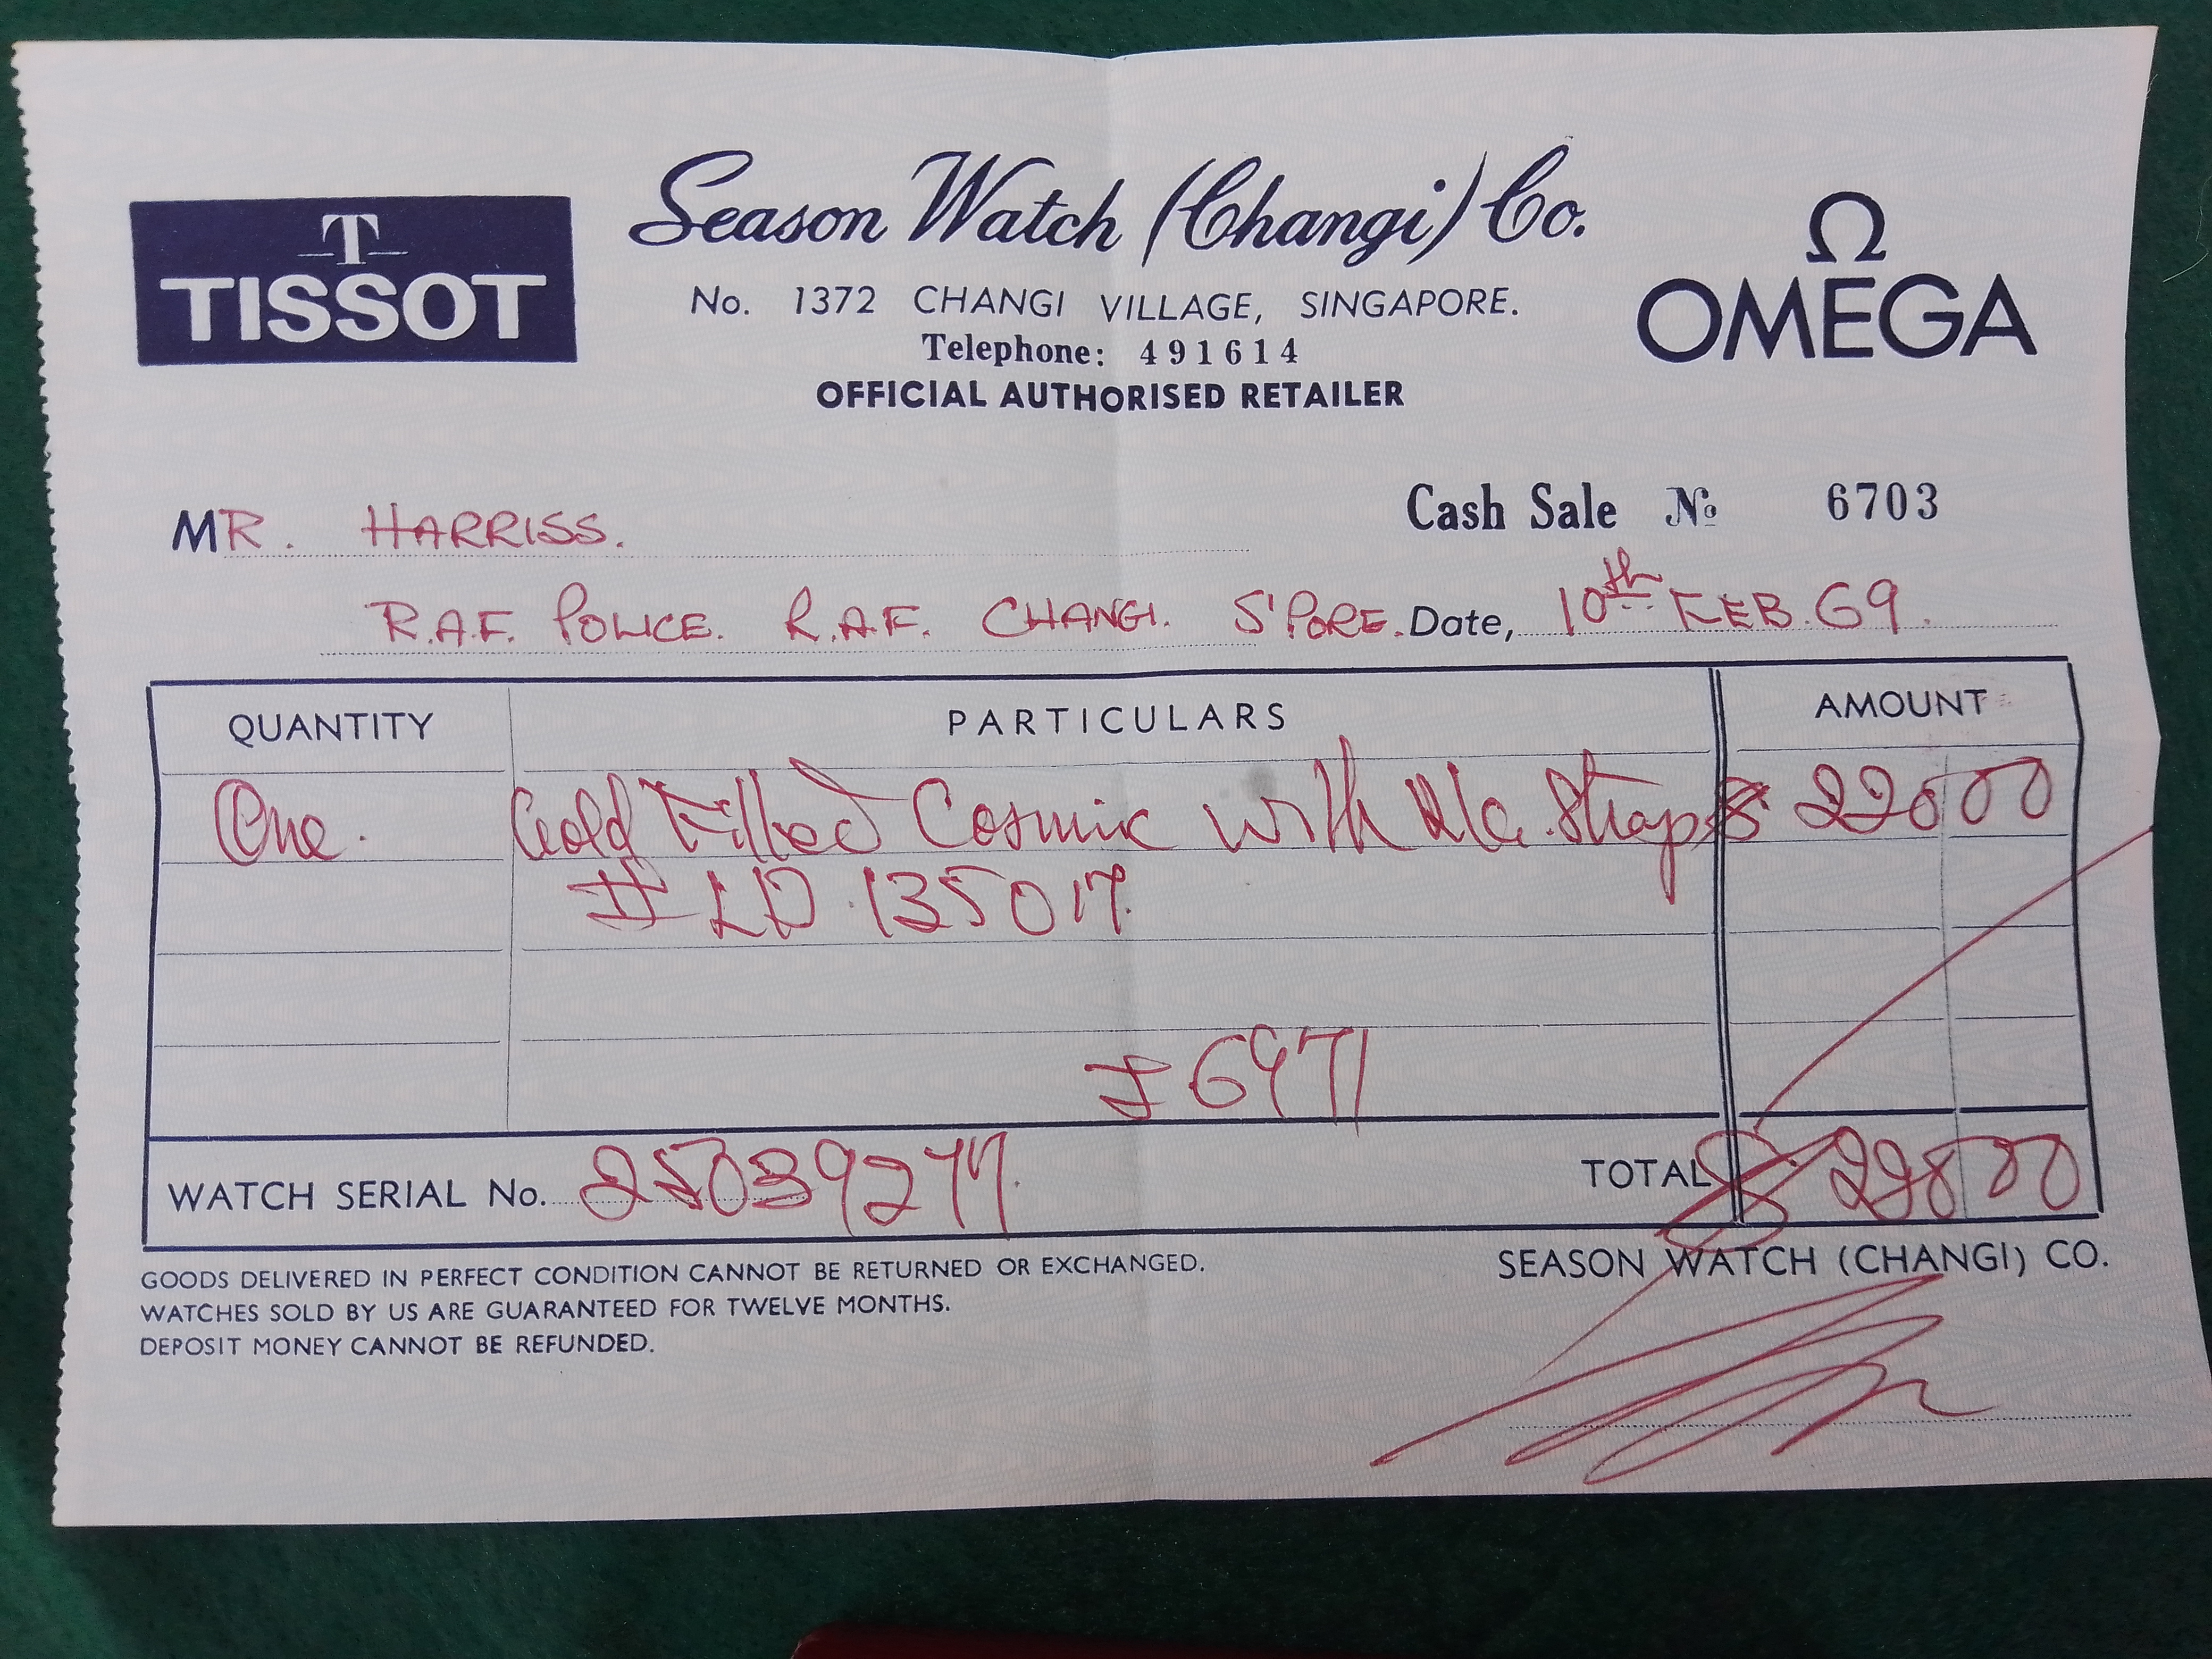 T
TISSOT
Season Watch (Changi) Co.
No. 1372 CHANGI VILLAGE, SINGAPORE.
Telephone: 491614
OFFICIAL AUTHORISED RETAILER
Ω
OMEGA
MR. HARRISS.
Cash Sale № 6703
R.A.F. POLICE. R.A.F. CHANGI. S'PORE. Date, 10th FEB. 69.
QUANTITY PARTICULARS AMOUNT
One. Gold Filled Cosmic with Strap $
# LD 135017.
6971
WATCH SERIAL No. 25039277. TOTAL $
GOODS DELIVERED IN PERFECT CONDITION CANNOT BE RETURNED OR EXCHANGED.
WATCHES SOLD BY US ARE GUARANTEED FOR TWELVE MONTHS.
DEPOSIT MONEY CANNOT BE REFUNDED.
SEASON WATCH (CHANGI) CO.